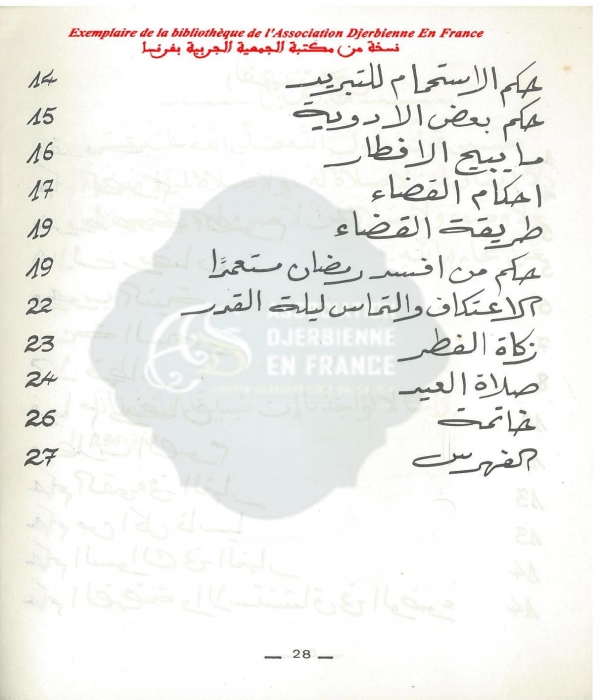 Exemplaire de la bibliothèque de l'Association Djerbienne En France
نسخة من مكتبة الجمعية الجربية بفرنسا
حكم الاستحمام للتبريد 14
حكم بعض الادوية 15
ما يبيح الافطار 16
احكام القضاء 17
طريقة القضاء 19
حكم من افسد رمضان متعمدًا 19
الاعتكاف والتماس ليلة القدر 22
زكاة الفطر 23
صلاة العيد 24
خاتمة 26
الفهرس 27
DJERBIENNE
EN FRANCE
— 28 —